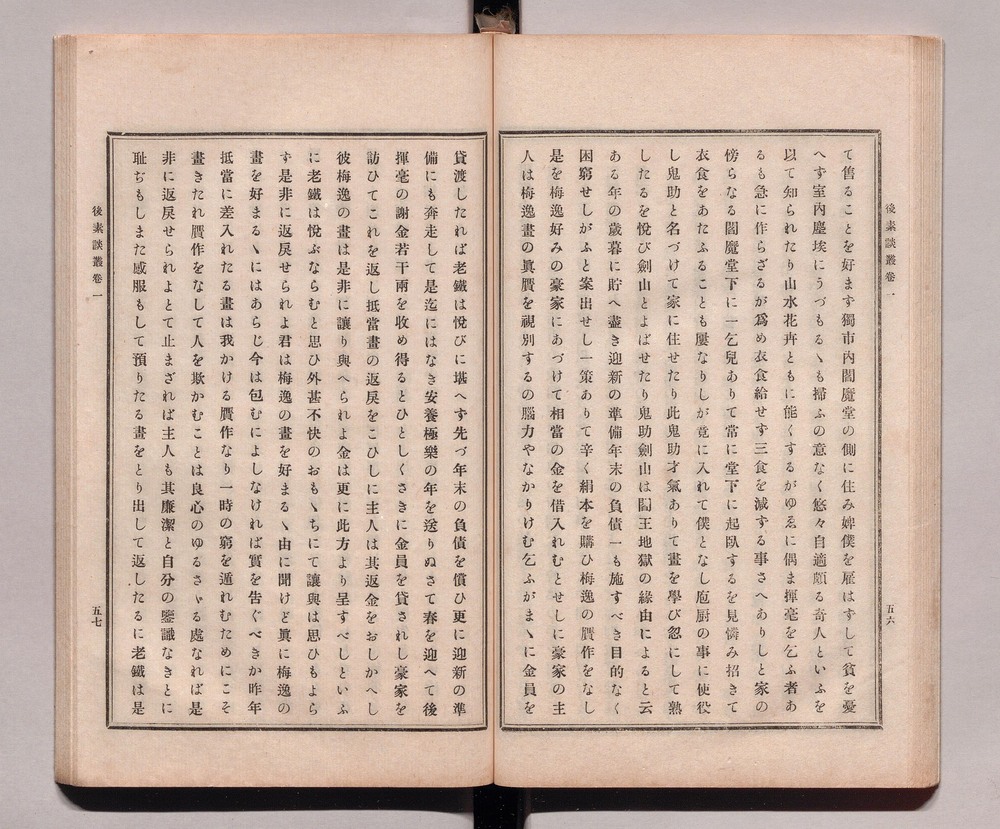 後素談叢卷一
五六
て售ることを好ます獨市內閻魔堂の側に住み婢僕を雇はすして貧を憂
へす室內塵埃にうづもるヽも掃ふの意なく悠々自適頗る奇人といふを
以て知られたり山水花卉ともに能くするがゆゑに偶ま揮毫を乞ふ者あ
るも急に作らざるが爲め衣食給せす三食を減する事さへありしと家の
傍らなる閻魔堂下に一乞兒ありて常に堂下に起臥するを見憐み招きて
衣食をあたふることも屢なりしが竟に入れて僕となし庖厨の事に使役
し鬼助と名づけて家に住せたり此鬼助才氣ありて畫を學び忽にして熟
したるを悅び劍山とよばせたり鬼助劍山は閻王地獄の緣由によると云
ある年の歲暮に貯へ盡き迎新の準備年末の負債一も施すべき目的なく
困窮せしがふと案出せし一策ありて辛く絹本を購ひ梅逸の贋作をなし
是を梅逸好みの豪家にあづけて相當の金を借入れむとせしに豪家の主
人は梅逸畫の眞贋を視別するの腦力やなかりけむ乞ふがまヽに金員を
貸渡したれば老鐵は悅びに堪へす先づ年末の負債を償ひ更に迎新の準
備にも奔走して是迄にはなき安養極樂の年を送りぬさて春を迎へて後
揮毫の謝金若干兩を收め得るとひとしくさきに金員を貸されし豪家を
訪ひてこれを返し抵當畫の返戾をこひしに主人は其返金をおしかへし
彼梅逸の畫は是非に讓り與へられよ金は更に此方より呈すべしといふ
に老鐵は悅ぶならむと思ひ外甚不快のおもヽちにて讓與は思ひもよら
す是非に返戾せられよ君は梅逸の畫を好まるヽ由に聞けど眞に梅逸の
畫を好まるヽにはあらじ今は包むによしなければ實を告ぐべきか昨年
抵當に差入れたる畫は我かける贋作なり一時の窮を遁れむためにこそ
畫きたれ贋作をなして人を欺かむことは良心のゆるさヾる處なれば是
非に返戾せられよとて止まざれば主人も其廉潔と自分の鑒識なきとに
耻ぢもしまた感服もして預りたる畫をとり出して返したるに老鐵は是
後素談叢卷一
五七